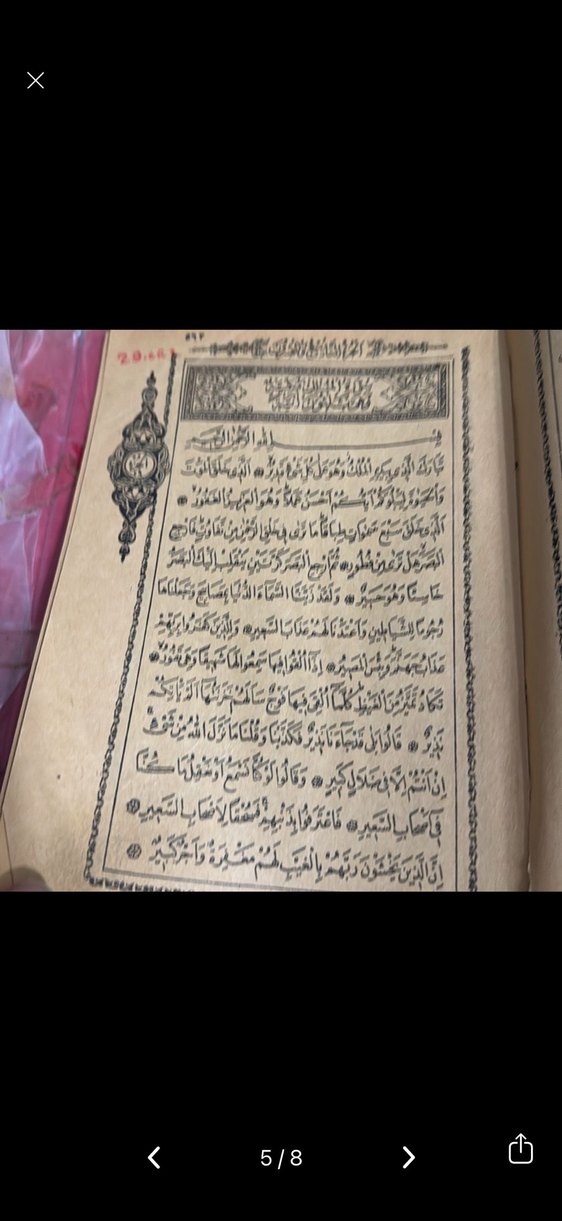 بِسْمِ اللهِ الرَّحْمٰنِ الرَّحِيمِ
تَبَارَكَ الَّذِى بِيَدِهِ الْمُلْكُ وَهُوَ عَلٰى كُلِّ شَىْءٍ قَدِيرٌ ۞ اَلَّذِى خَلَقَ الْمَوْتَ
وَالْحَيٰوةَ لِيَبْلُوَكُمْ اَيُّكُمْ اَحْسَنُ عَمَلًا وَهُوَ الْعَزِيزُ الْغَفُورُ ۞
اَلَّذِى خَلَقَ سَبْعَ سَمٰوَاتٍ طِبَاقًا مَا تَرٰى فِى خَلْقِ الرَّحْمٰنِ مِنْ تَفَاوُتٍ فَارْجِعِ
الْبَصَرَ هَلْ تَرٰى مِنْ فُطُورٍ ۞ ثُمَّ ارْجِعِ الْبَصَرَ كَرَّتَيْنِ يَنْقَلِبْ اِلَيْكَ الْبَصَرُ
خَاسِئًا وَهُوَ حَسِيرٌ ۞ وَلَقَدْ زَيَّنَّا السَّمَاءَ الدُّنْيَا بِمَصَابِيحَ وَجَعَلْنَاهَا
رُجُومًا لِلشَّيَاطِينِ وَاَعْتَدْنَا لَهُمْ عَذَابَ السَّعِيرِ ۞ وَلِلَّذِينَ كَفَرُوا بِرَبِّهِمْ
عَذَابُ جَهَنَّمَ وَبِئْسَ الْمَصِيرُ ۞ اِذَا اُلْقُوا فِيهَا سَمِعُوا لَهَا شَهِيقًا وَهِىَ تَفُورُ ۞
تَكَادُ تَمَيَّزُ مِنَ الْغَيْظِ كُلَّمَا اُلْقِىَ فِيهَا فَوْجٌ سَاَلَهُمْ خَزَنَتُهَا اَلَمْ يَاْتِكُمْ
نَذِيرٌ ۞ قَالُوا بَلٰى قَدْ جَاءَنَا نَذِيرٌ فَكَذَّبْنَا وَقُلْنَا مَا نَزَّلَ اللهُ مِنْ شَىْءٍ
اِنْ اَنْتُمْ اِلَّا فِى ضَلَالٍ كَبِيرٍ ۞ وَقَالُوا لَوْ كُنَّا نَسْمَعُ اَوْ نَعْقِلُ مَا كُنَّا
فِى اَصْحَابِ السَّعِيرِ ۞ فَاعْتَرَفُوا بِذَنْبِهِمْ فَسُحْقًا لِاَصْحَابِ السَّعِيرِ ۞
اِنَّ الَّذِينَ يَخْشَوْنَ رَبَّهُمْ بِالْغَيْبِ لَهُمْ مَغْفِرَةٌ وَاَجْرٌ كَبِيرٌ ۞
5 / 8